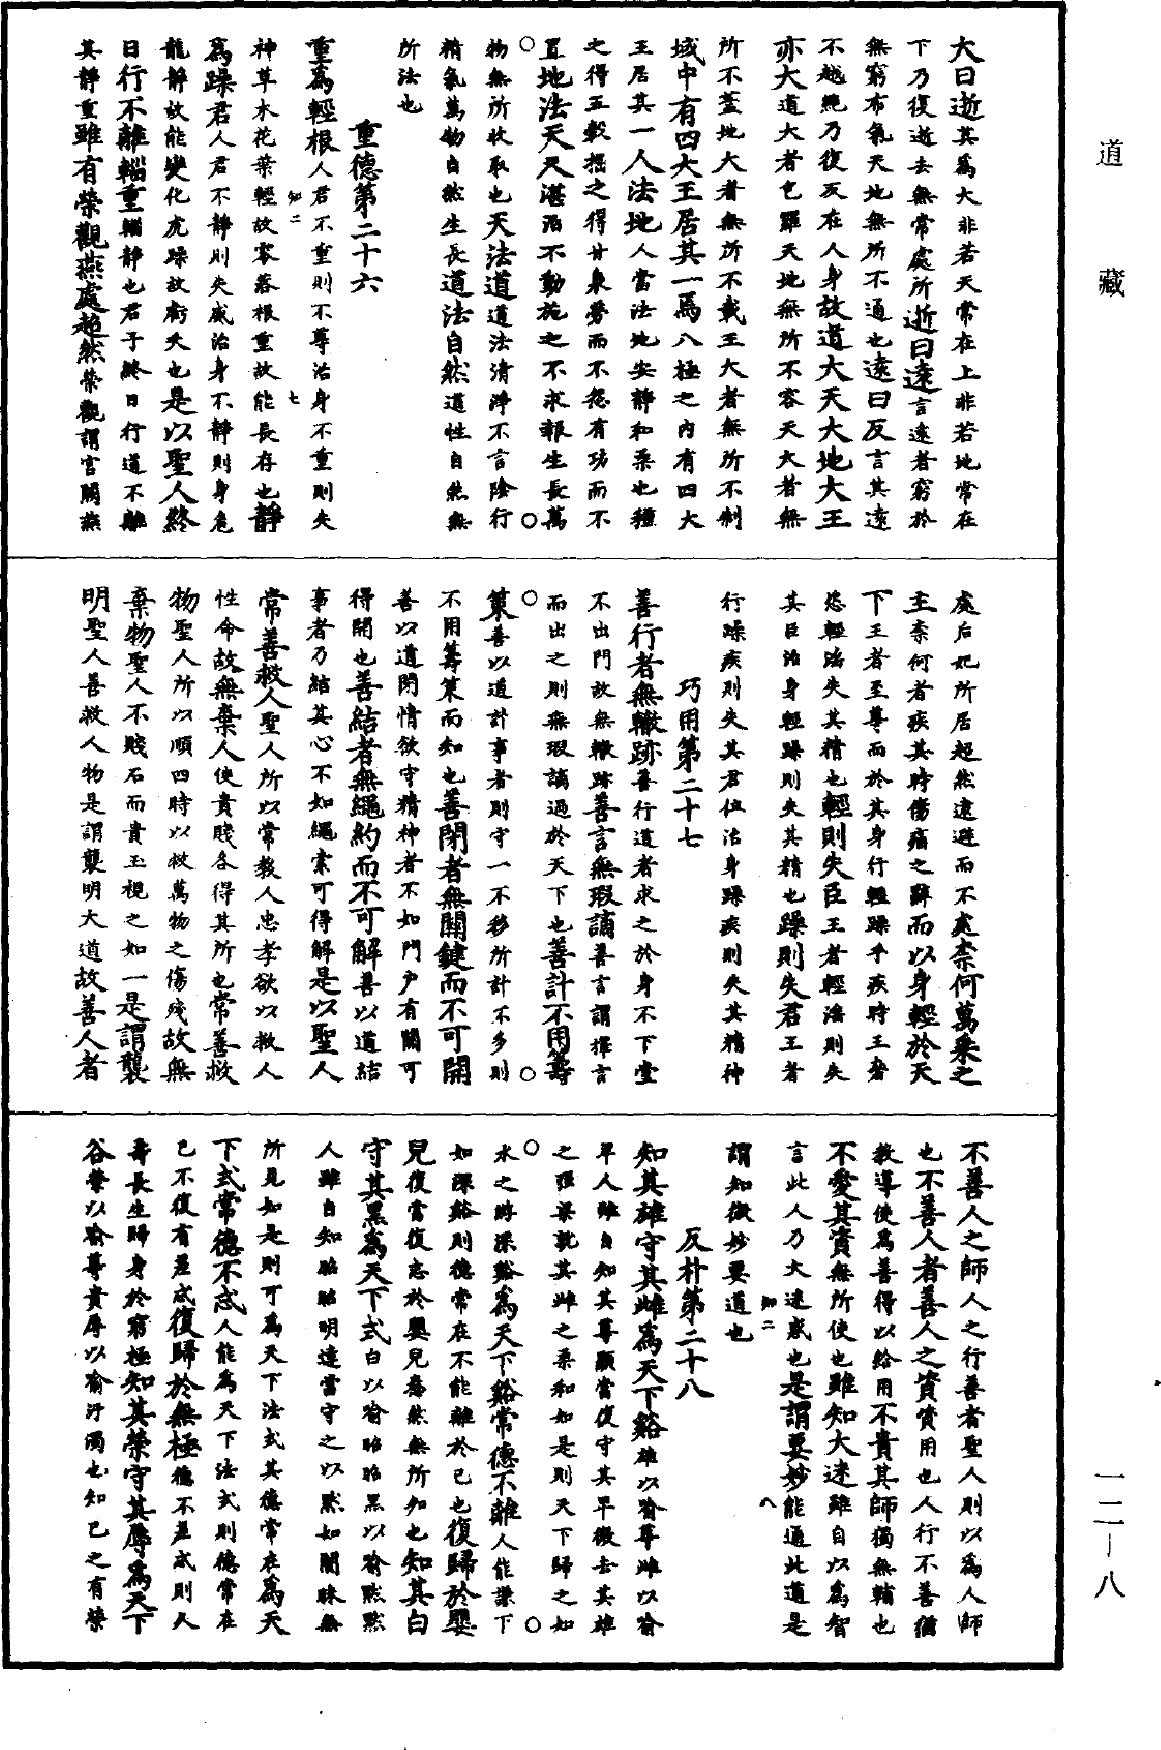 道藏
大曰逝其為大非若天常在上非若地常在
下乃復逝去無常處所逝曰遠言遠者窮於
無窮布氣天地無所不通也遠曰反言其遠
不越絕乃復反在人身故道大天大地大王
亦大道大者包羅天地無所不容天大者無
所不蓋地大者無所不載王大者無所不制
域中有四大王居其一焉八極之內有四大
王居其一人法地人當法地安靜和柔也種
之得五穀掘之得甘泉勞而不怨有功而不
置地法天天湛泊不動施之不求報生長萬
物無所收取也天法道道法清淨不言陰行
精氣萬物自然生長道法自然道性自然無
所法也
重德第二十六
重為輕根人君不重則不尊治身不重則失
神草木花葉輕故零落根重故能長存也靜
為躁君人君不靜則失威治身不靜則身危
龍靜故能變化虎躁故虧夭也是以聖人終
日行不離輜重輜靜也君子終日行道不離
其靜重雖有榮觀燕處超然榮觀謂宮闕燕
知二
七
處后妃所居超然遠避而不處柰何萬乘之
主柰何者疾其時傷痛之辭而以身輕於天
下王者至尊而於其身行輕躁乎疾時王奢
恣輕淫失其精也輕則失臣王者輕淫則失
其臣治身輕躁則失其精也躁則失君王者
行躁疾則失其君位治身躁疾則失其精神
巧用第二十七
善行者無轍跡善行道者求之於身不下堂
不出門故無轍跡善言無瑕讁善言謂擇言
而出之則無瑕讁過於天下也善計不用籌
策善以道計事者則守一不移所計不多則
不用籌策而知也善閉者無關鍵而不可開
善以道閉情欲守精神者不如門戶有關可
得開也善結者無繩約而不可解善以道結
事者乃結其心不如繩索可得解是以聖人
常善救人聖人所以常教人忠孝欲以救人
性命故無棄人使貴賤各得其所也常善救
物聖人所以順四時以救萬物之傷殘故無
棄物聖人不賤石而貴玉視之如一是謂襲
明聖人善救人物是謂襲明大道故善人者
不善人之師人之行善者聖人則以為人師
也不善人者善人之資資用也人行不善猶
教導使為善得以給用不貴其師獨無輔也
不愛其資無所使也雖知大迷雖自以為智
言此人乃大迷惑也是謂要妙能通此道是
謂知微妙要道也
知二
八
反朴第二十八
知其雄守其雌為天下谿雄以喻尊雌以喻
卑人雖自知其尊顯當復守其卑微去其雄
之強梁就其雌之柔和如是則天下歸之如
水之時深谿為天下谿常德不離人能謙下
如深谿則德常在不能離於已也復歸於嬰
兒復當復志於嬰兒憃然無所知也知其白
守其黑為天下式白以喻昭昭黑以喻默默
人雖自知昭昭明達當守之以默如闇昧無
所見如是則可為天下法式其德常在為天
下式常德不忒人能為天下法式則德常在
已不復有差忒復歸於無極德不差忒則人
壽長生歸身於窮極知其榮守其辱為天下
谷榮以喻尊貴辱以喻汙濁也知已之有榮
一二一八